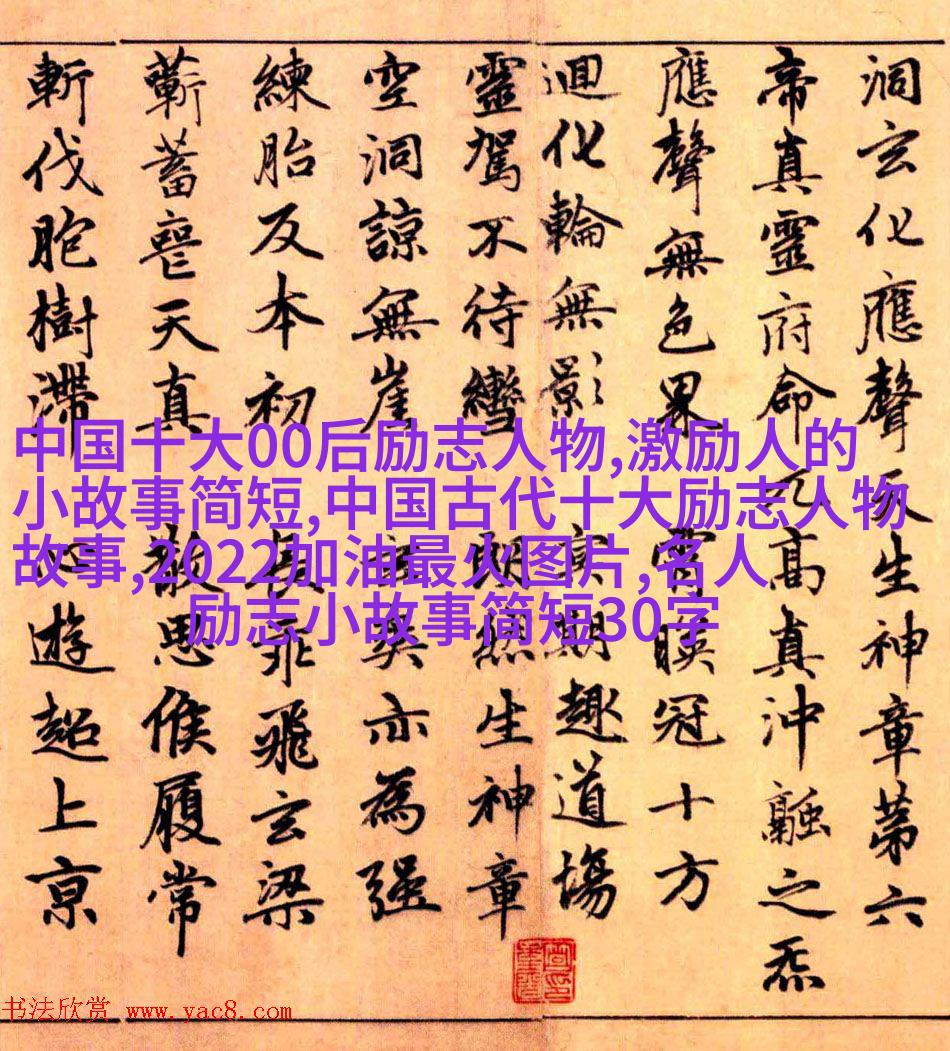 洞玄化應聲天生神章苐六
帝真靈府命元高真沖融之炁
應聲無色界霄暎冠十方
迴化輪無影冥期趣道場
靈駕不待轡生神章
空洞諒無崖爽亦為强
練胎反本初長乘飛玄梁
蘄蓄喪天真散思候履常
斬伐胞樹滯心遊超上京
中国十大00后励志人物,激励人的
小故事简短,中国古代十大励志人物
故事,2022加油最火图片,名人
励志小故事简短30字
书法欣赏 www.yac8.com